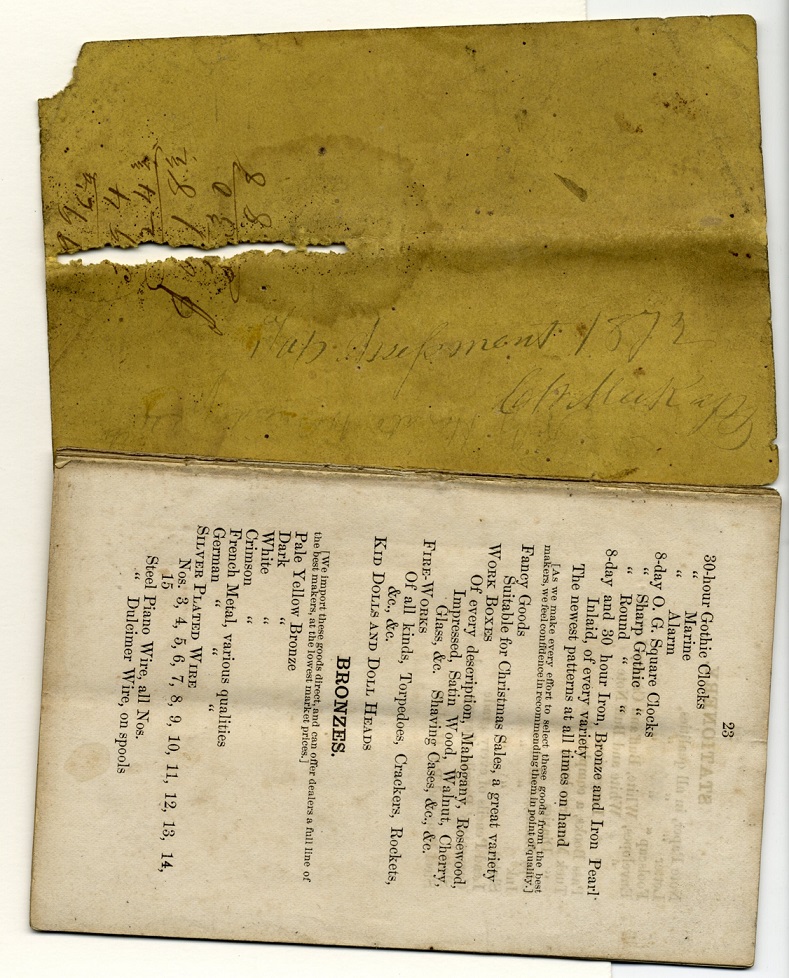 23
30-hour Gothic Clocks
" Marine
" Alarm
8-day O. G. Square Clocks
" Sharp Gothic "
" Round " "
8-day and 30 hour Iron, Bronze and Iron Pearl
Inlaid, of every variety
The newest patterns at all times on hand
[As we make every effort to select these goods from the best
makers, we feel confidence in recommending them in point of quality.]
Fancy Goods
Suitable for Christmas Sales, a great variety
WORK BOXES
Of every description, Mahogany, Rosewood,
Impressed, Satin Wood, Walnut, Cherry,
Glass, &c. Shaving Cases, &c., &c.
FIRE-WORKS
Of all kinds, Torpedoes, Crackers, Rockets,
&c., &c.
KID DOLLS AND DOLL HEADS
BRONZES.
[We import these goods direct, and can offer dealers a full line of
the best makers, at the lowest market prices.]
Pale Yellow Bronze
Dark "
White "
Crimson "
French Metal, various qualities
German " " "
SILVER PLATED WIRE
Nos. 3, 4, 5, 6, 7, 8, 9, 10, 11, 12, 13, 14,
15
Steel Piano Wire, all Nos.
" Dulcimer Wire, on spools